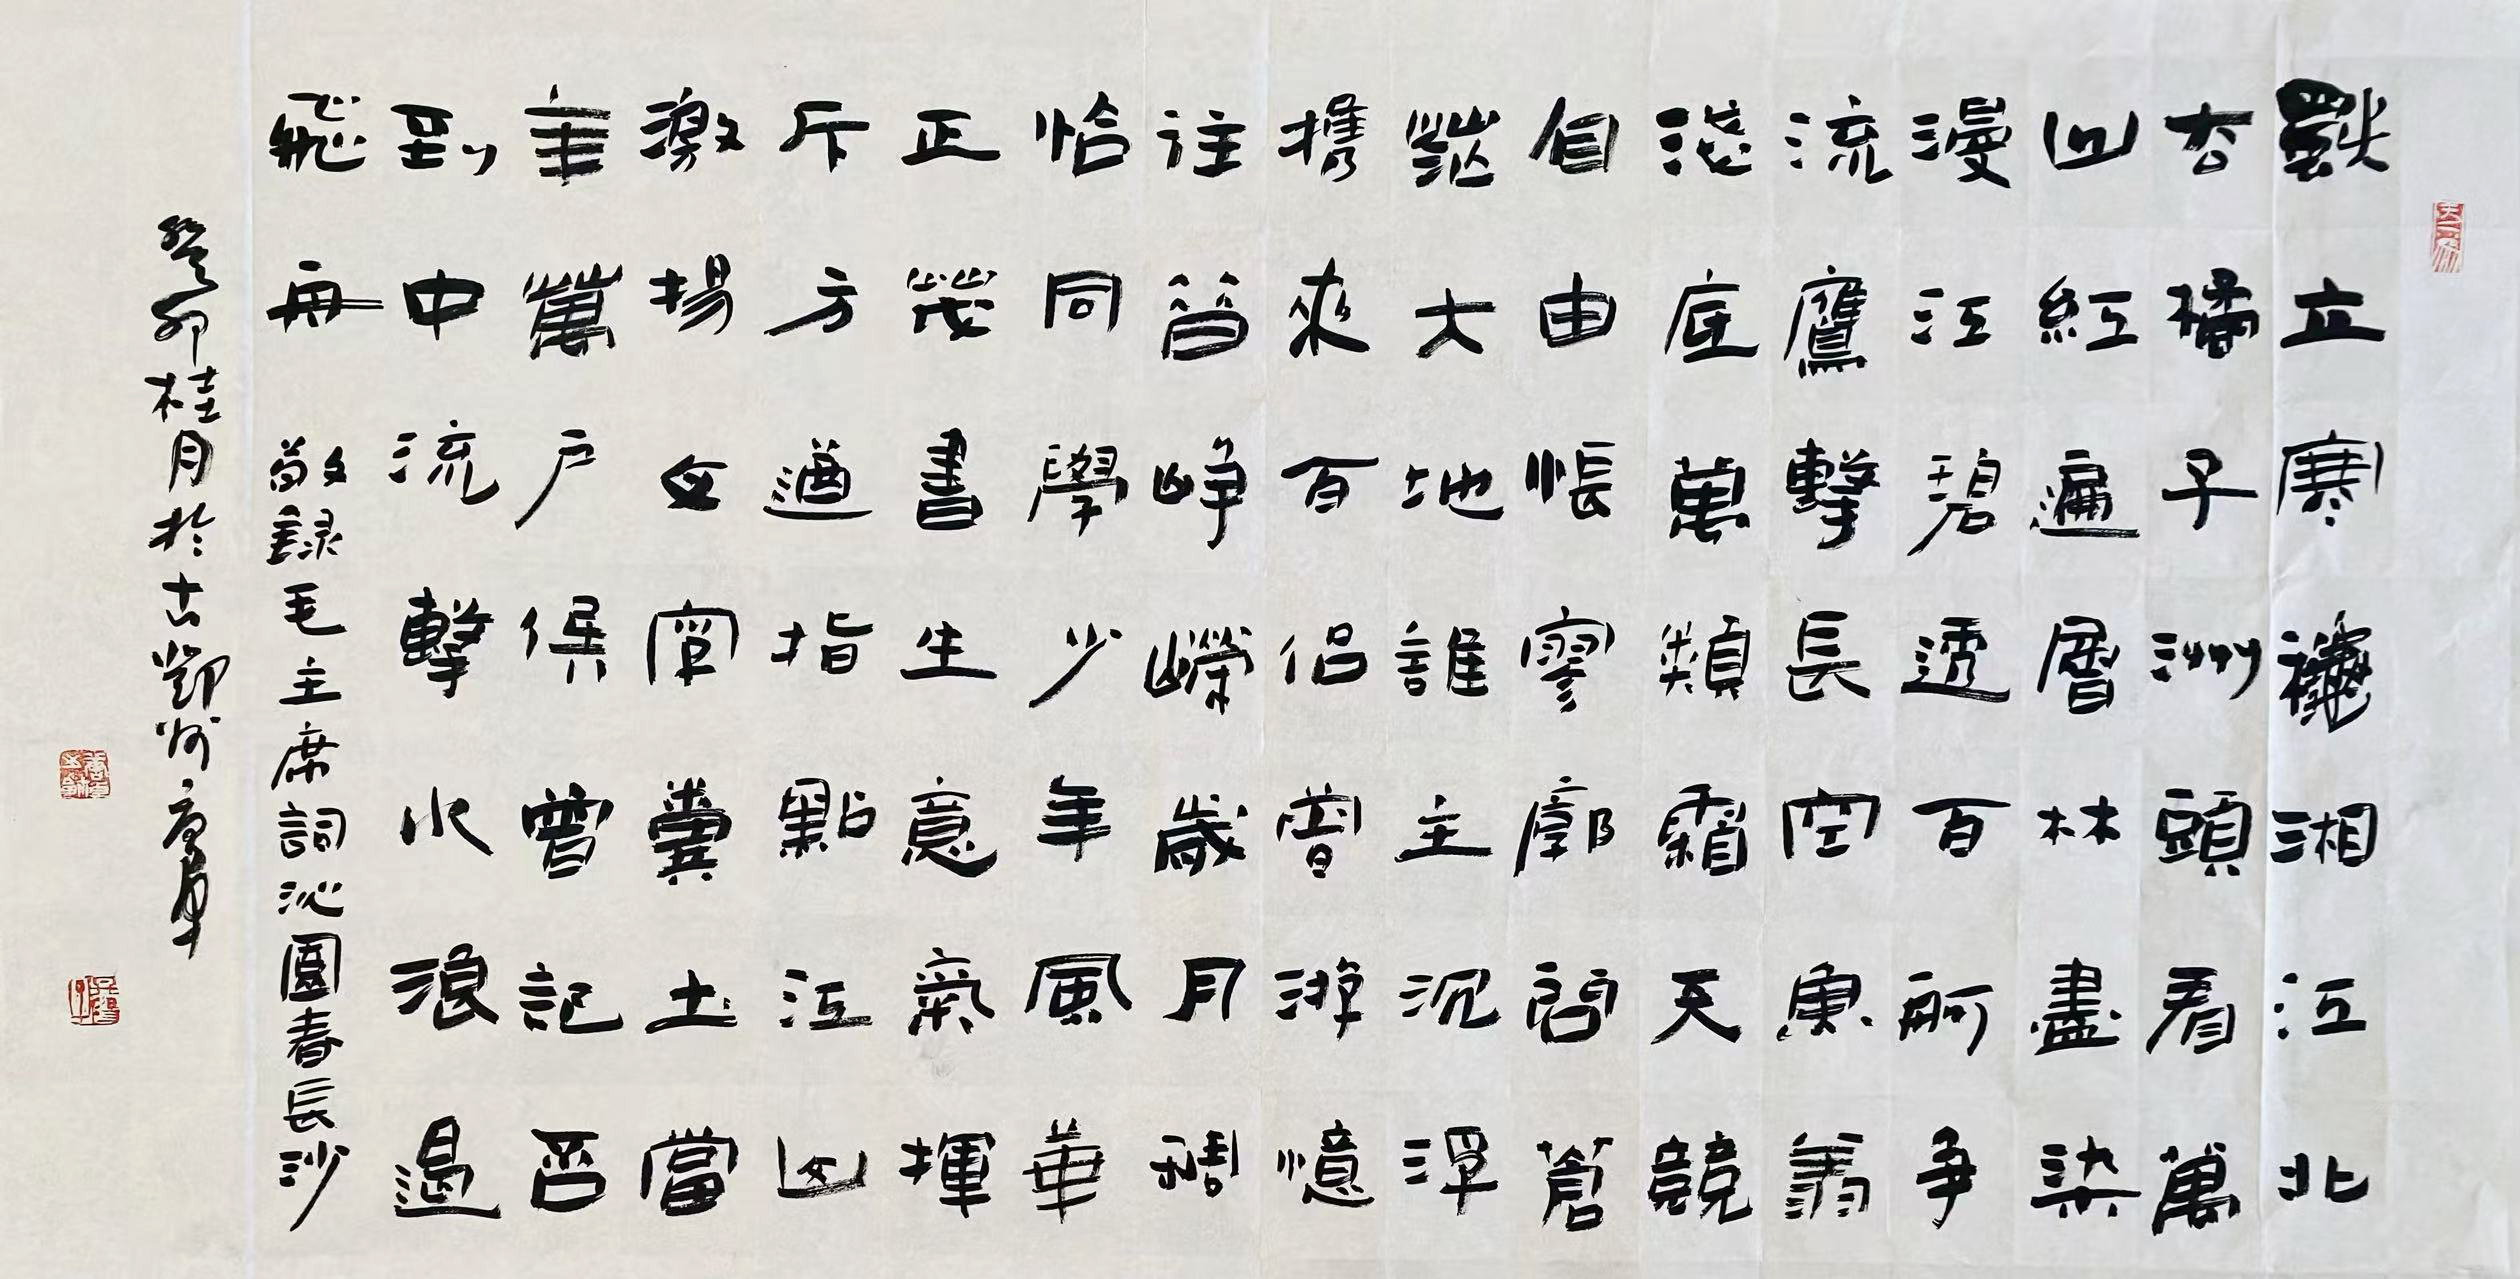 獨立寒龝湘江北
去橘子洲頭看萬
山紅遍層林盡染
漫江碧透百舸争
流鷹擊長空魚翔
淺底萬類霜天競
自由悵寥廓問蒼
茫大地誰主沉浮
携來百侣曾游憶
往昔崢嶸歲月稠
恰同學少年風華
正茂書生意氣揮
斥方遒指點江山
激揚文字糞土當
年萬户侯曾記否
到中流擊水浪遏
飛舟 敬録毛主席詞沁園春長沙
癸卯桂月於古鄧州唐軍